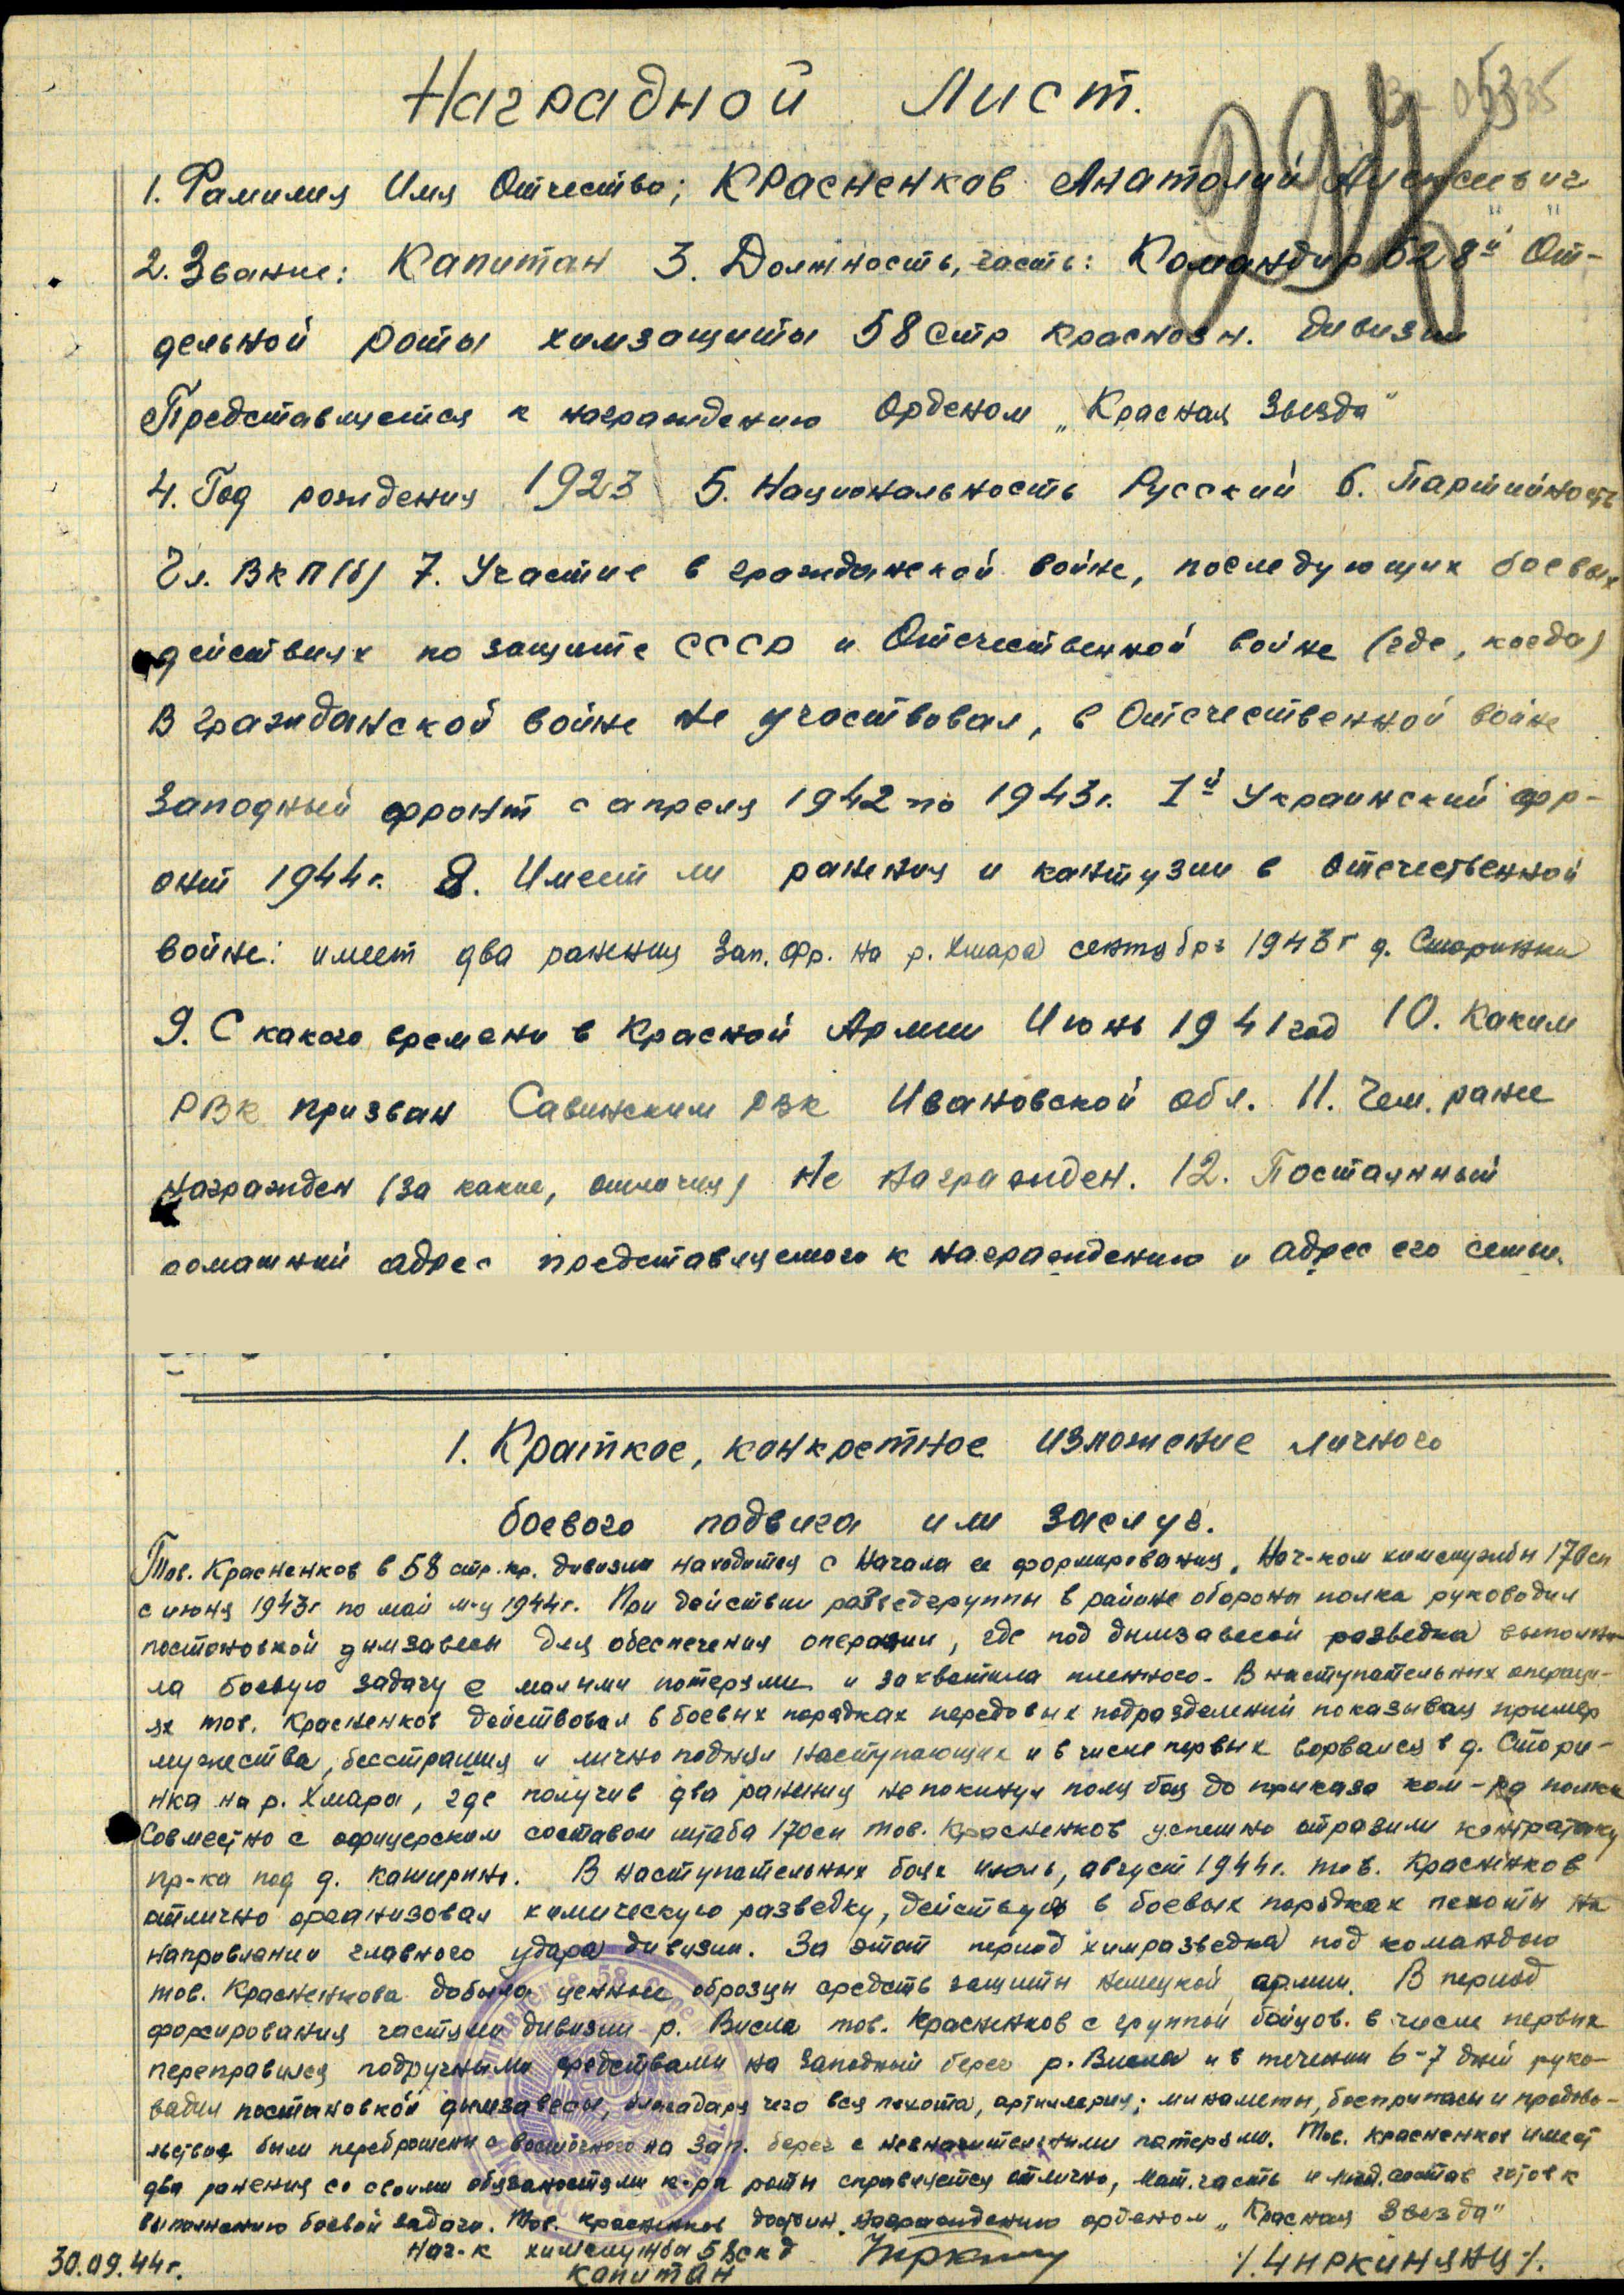 Наградной Лист.
1. Фамилия Имя Отчество; Красненков Анатолий
2. Звание: Капитан 3. Должность, часть: Командир 628й От-
дельной роты химзащиты 58 Стр краснозн. дивизии
Представляется к награждению Орденом „Красная Звезда"
4. Год рождения 1923 5. Национальность Русский 6. Партийность
Чл. ВКП(б) 7. Участие в гражданской войне, последующих боевых
действиях по защите СССР и Отечественной войне (где, когда)
В гражданской войне не участвовал, в Отечественной войне
Западный фронт с апреля 1942 по 1943г. 1й Украинский фр-
онт 1944г. 8. Имеет ли ранения и кантузии в отечественной
войне: имеет два ранения Зап. Фр. на р. Хмара сентябрь 1943г д. Сторинка
9. С какого времени в Красной Армии Июнь 1941 год 10. Каким
РВК призван Савинским РВК Ивановской обл. 11. Чем ранее
награжден (за какие, отличия) Не награжден. 12. Постоянный
домашний адрес представляемого к награждению и адрес его семьи.
1. Краткое, конкретное изложение личного
боевого подвига или заслуг.
Тов. Красненков в 58 стр. кр. дивизии находится с начала ее формирования. Нач-ком химслужбы 170сп
с июня 1943г по май м-ц 1944г. При действии разведгруппы в районе обороны полка руководил
постановкой дымзавесы для обеспечения операции, где под дымзавесой разведка выполни-
ла боевую задачу с малыми потерями и захватила пленного. В наступательных операци-
ях тов. Красненков действовал в боевых порядках передовых подразделений показывая пример
мужества, бесстрашия и лично поднял наступающих и в числе первых ворвался в д. Стори-
нка на р. Хмара, где получив два ранения не покинул поля боя до приказа ком-ра полка
Совместно с офицерским составом штаба 170сп тов. Красненков успешно отразили контратаку
пр-ка под д. Каширино. В наступательных боях июль, август 1944г. тов. Красненков
отлично организовал химическую разведку, действуя в боевых порядках пехоты на
направлении главного удара дивизии. За этот период химразведка под командою
тов. Красненкова добыла ценные образцы средств защиты немецкой армии. В период
форсирования частями дивизии р. Висла тов. Красненков с группой бойцов в числе первых
переправился подручными средствами на западный берег р. Висла и в течении 6-7 дней руко-
водил постановкой дымзавесы, благодаря чего вся пехота, артиллерия, минаметы, боеприпасы и продово-
льствие были переброшены с восточного на зап. берег с незначительными потерями. Тов. Красненков имеет
два ранения со своими обязаностями к-ра роты справляется отлично, мат. часть и личн. состав готов к
выполнению боевой задачи. Тов. Красненков достоин награждению орденом „Красная Звезда"
Нач-к химслужбы 58скд
30.09.44г. капитан /Чиркинянц/.